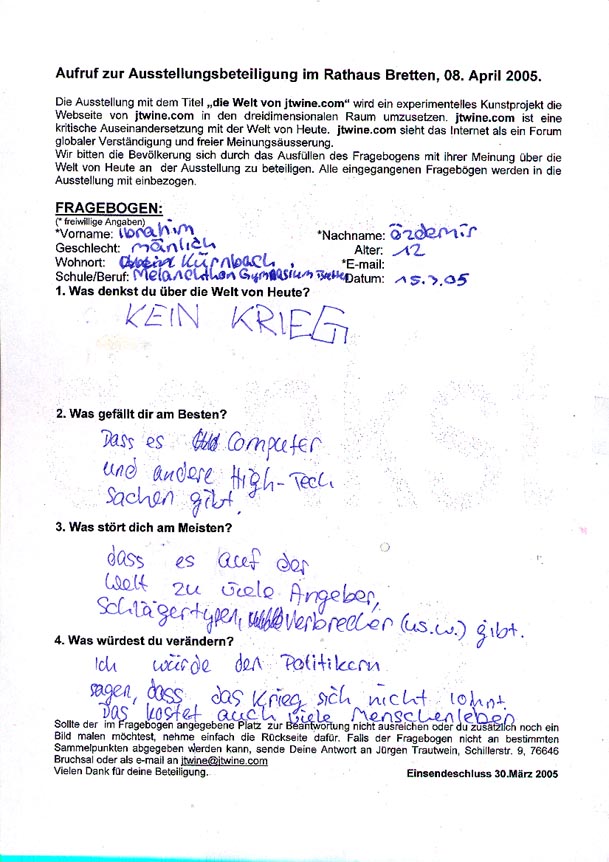 Aufruf zur Ausstellungsbeteiligung im Rathaus Bretten, 08. April 2005.
Die Ausstellung mit dem Titel „die Welt von jtwine.com“ wird ein experimentelles Kunstprojekt die
Webseite von jtwine.com in den dreidimensionalen Raum umzusetzen. jtwine.com ist eine
kritische Auseinandersetzung mit der Welt von Heute. jtwine.com sieht das Internet als ein Forum
globaler Verständigung und freier Meinungsäusserung.
Wir bitten die Bevölkerung sich durch das Ausfüllen des Fragebogens mit ihrer Meinung über die
Welt von Heute an der Ausstellung zu beteiligen. Alle eingegangenen Fragebögen werden in die
Ausstellung mit einbezogen.
FRAGEBOGEN:
(* freiwillige Angaben)
*Vorname: ibrahim *Nachname: özdemir
Geschlecht: mänlich Alter: 12
Wohnort: Kürnbach *E-mail:
Schule/Beruf: Melanchthon Gymnasium Bretten Datum: 15.3.05
1. Was denkst du über die Welt von Heute?
KEIN KRIEG
denkst
2. Was gefällt dir am Besten?
Dass es Computer
und andere High-Tech
sachen gibt.
3. Was stört dich am Meisten?
dass es auf der
Welt zu viele Angeber,
Schlägertypen, Verbrecher (us.w.) gibt.
4. Was würdest du verändern?
Ich würde den Politikern
sagen, dass das Krieg sich nicht lohnt.
Das kostet auch viele Menschenleben
Sollte der im Fragebogen angegebene Platz zur Beantwortung nicht ausreichen oder du zusätzlich noch ein
Bild malen möchtest, nehme einfach die Rückseite dafür. Falls der Fragebogen nicht an bestimmten
Sammelpunkten abgegeben werden kann, sende Deine Antwort an Jürgen Trautwein, Schillerstr. 9, 76646
Bruchsal oder als e-mail an jtwine@jtwine.com
Vielen Dank für deine Beteiligung. Einsendeschluss 30.März 2005